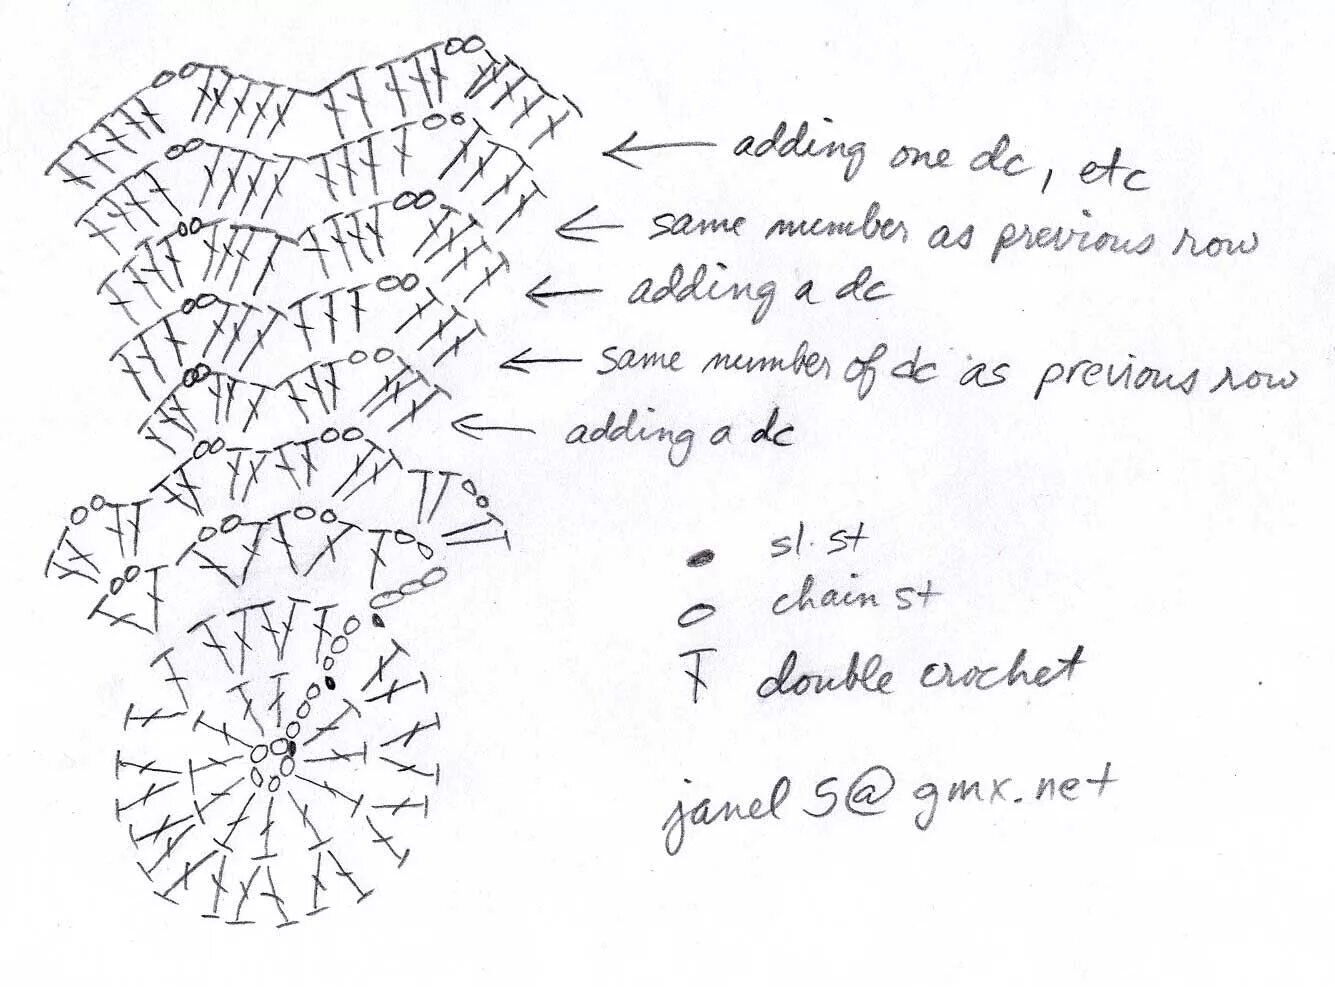 adding one dc, etc
same number as previous row
adding a dc
same number of dc as previous row
adding a dc
sl. st
chain st
double crochet
janel5@gmx.net